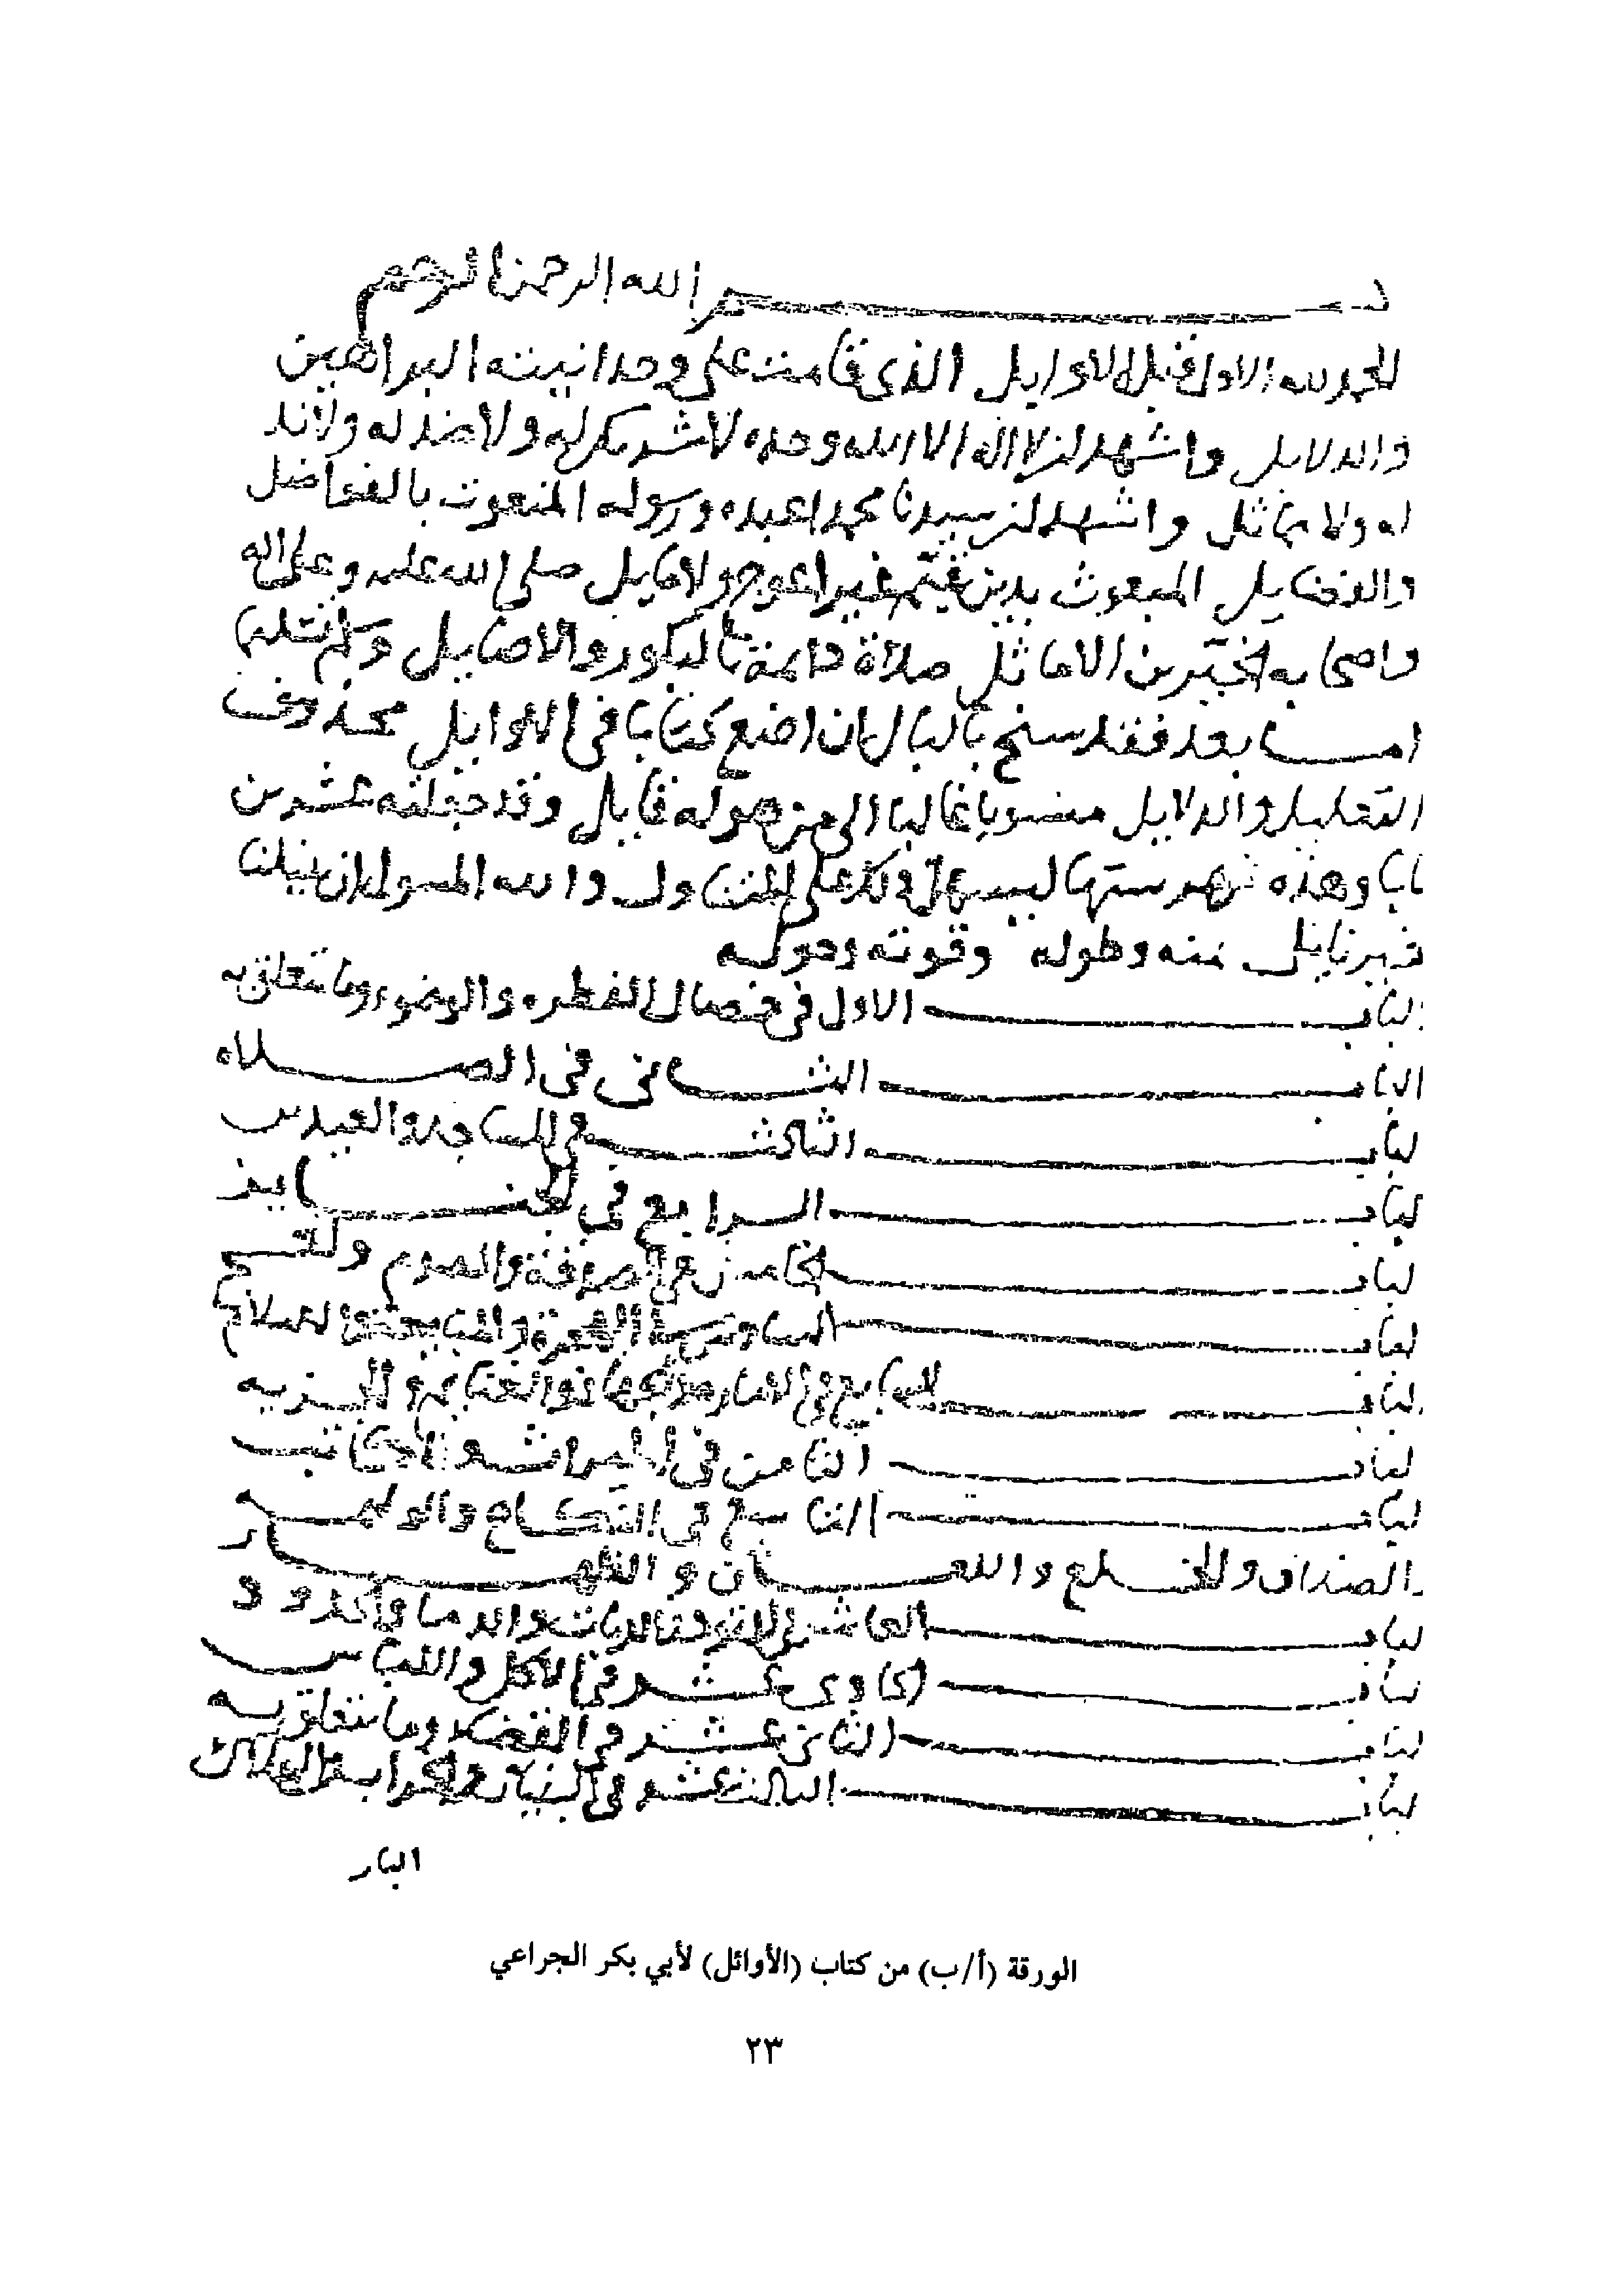 بسم الله الرحمن الرحيم
الحمد لله الاول قبل الاوايل الذى قامت على وحدانيته البراهين
والدلايل واشهد ان لا اله الا الله وحده لا شريك له ولا ضد له ولا ند
له ولا مماثل واشهد ان سيدنا محمدا عبده ورسوله المنعوت بالفواضل
والفضايل المبعوث بدين قيم غير اعوج ولا مايل صلى الله عليه وعلى اله
واصحابه الاماثل صلاة دائمة بالبكور والاصايل وسلم تسليما
اما بعد فقد سنح بالبال ان اضع كتابا في الاوايل محذوف
التعليل والدلايل منسوبا غالبا الى من هو له قايل وقد جعلته عشرين
بابا وهذه فهرستها ليسهل ذلك على المتناول والله المسول ان ينيلنا
منه وطوله وقوته وحوله
الباب الاول في خصال الفطره والوضوء وما يتعلق به
الباب الثاني في الصلاه
الباب الثالث في المساجد والعيدين
الباب الرابع في الجنايز
الباب الخامس في الصدقة والصوم والحج
الباب السادس
الباب السابع في الجهاد والغنايم والجزيه
الباب الثامن في الميراث والمكاتب
الباب التاسع في النكاح والوليمه
الصداق والخلع واللعان والظهار
الباب العاشر في والديات والدما والحدود
الباب الحادى عشر في الاكل واللباس
الباب الثاني عشر في القضا وما يتعلق به
الباب الثالث عشر في
الباب
الورقة (أ/ب) من كتاب (الأوائل) لأبي بكر الجراعي
٢٣